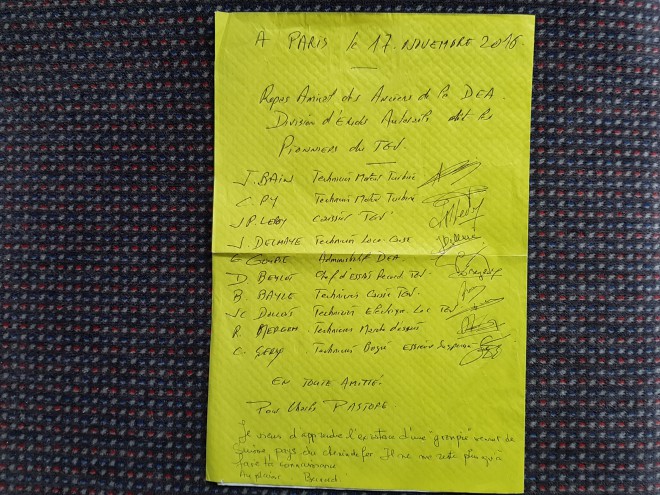 A PARIS le 17. NOVEMBRE 2016.
Repas Amical des Anciens de la DEA.
Division d'Etudes Autorails dit les
PIONNIERS du TGV.
J. BAIN Technicien Moteur Turbine
C. PY Technicien Moteur Turbine
J.P. LEROY Caissier TGV
J. DELHAYE Technicien Loco-Caisse
Administratif DEA
D. BEYLOT Chef d'ESSAIS Record TGV.
B. BAYLE Technicien Caisse TGV
JC Technicien Electrique Loc TGV
R. MERGEM Technicien
C. Technicien Bogie ESSIEUX Suspension
EN TOUTE AMITIÉ.
Pour Charles PASTORE
Je viens d'apprendre l'existence d'une "groupie" venant de
Suisse, pays du chemin de fer. Il ne me reste plus qu'à
faire ta connaissance
Au plaisir Bernard